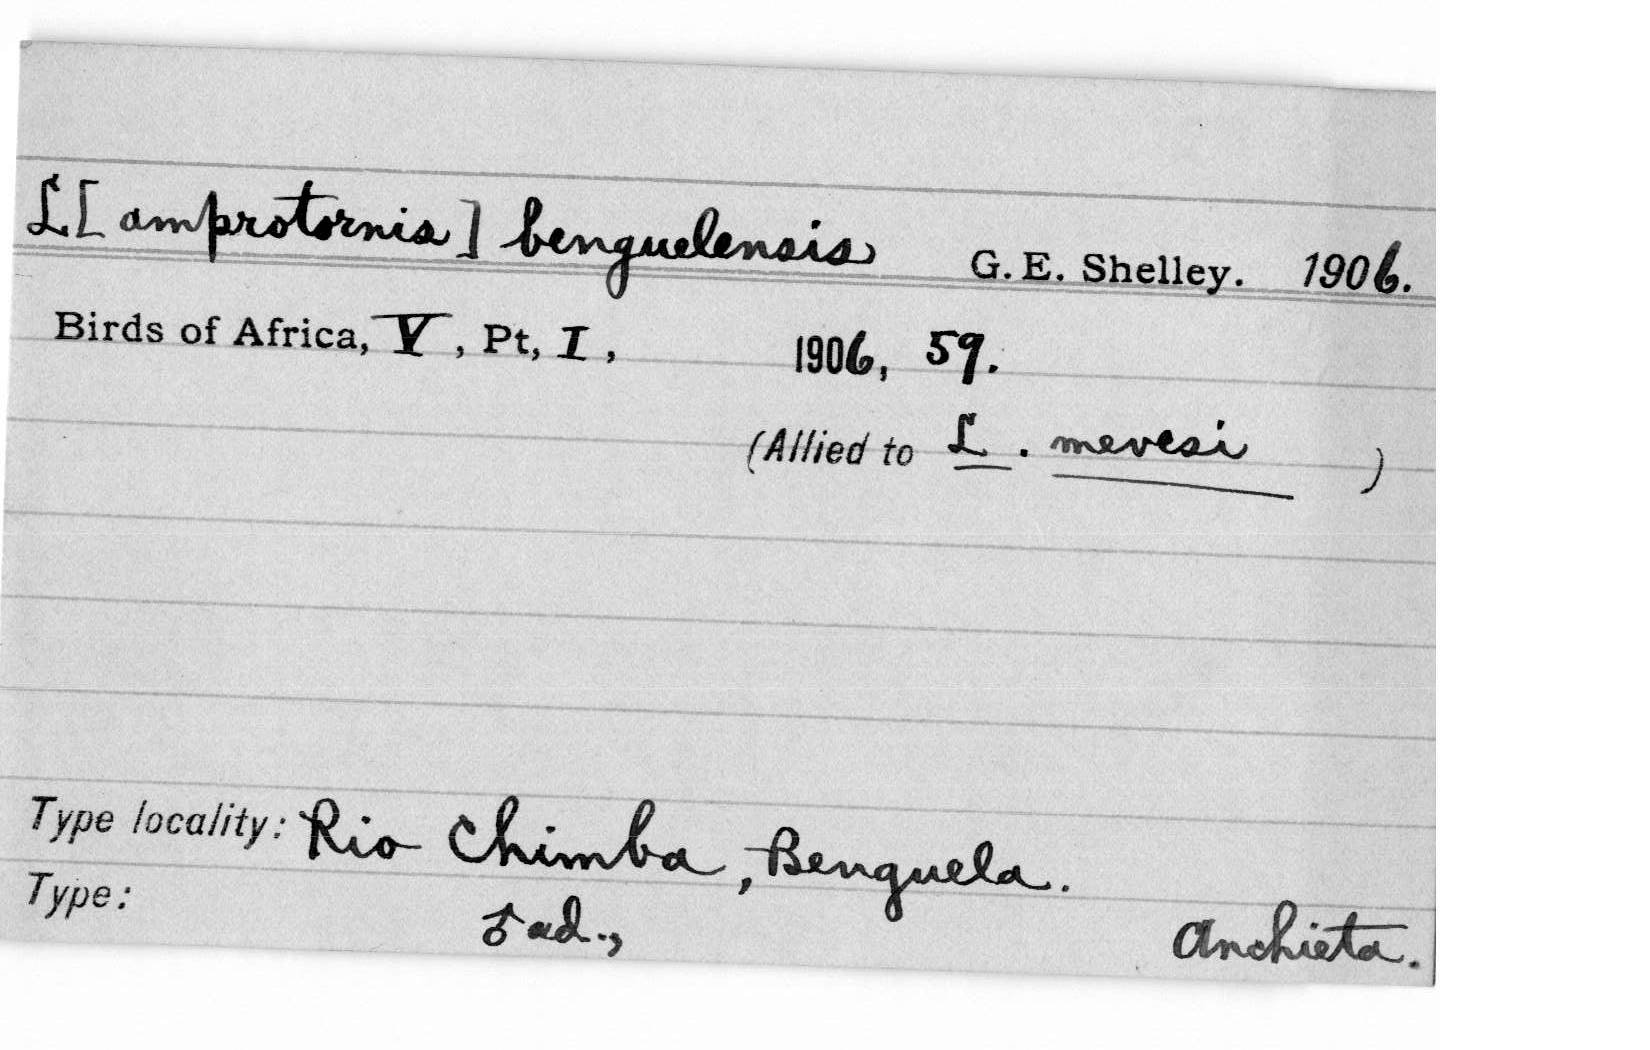 L[amprotornis] benguelensis G. E. Shelley. 1906.
Birds of Africa, V, Pt, I, 1906, 59.
(Allied to L. mevesi )
Type locality: Rio Chimba, Benguela.
Type: ♂ ad., Anchieta.